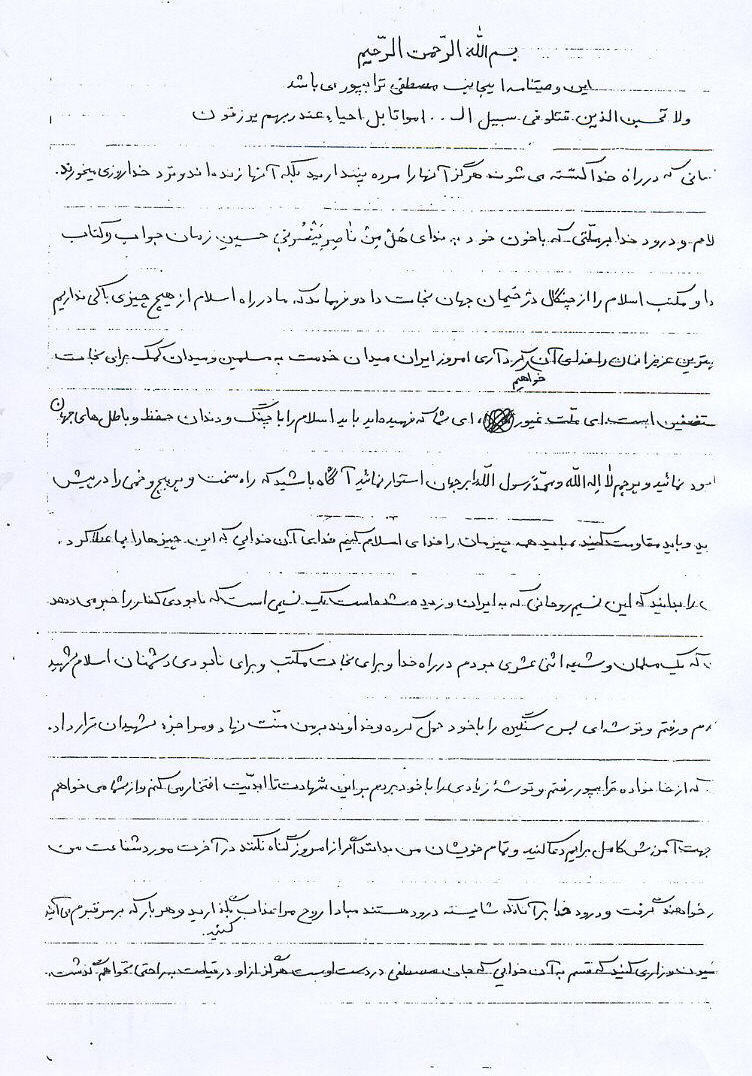 بسم الله الرّحمن الرّحیم
این وصیتنامه اینجانب مصطفی ترابپوری می باشد
ولا تحسبن الذین قتلو فی سبیل الـ .. امواتا بل احیاء عند ربهم یرزقون
سانی که در راه خدا کشته می شوند هرگز آنها را مرده پندارید بلکه آنها زنده اند و نزد خدا روزی میخورند.
لام و درود خدا بر ملّتی که با خون خود به ندای هَلْ مِنْ ناصِرٍ یَنْصُرُنی حسین زمان جواب و کتاب
دا و مکتب اسلام را از چنگال دژخیمان جهان نجات داد و فهماند که ما در راه اسلام از هیچ چیزی باکی نداریم
بهترین عزیزانمان را فدای آن خواهیم کرد آری امروز ایران میدان خدمت به مسلمین و میدان کمک برای نجات
ستضعفین است. ای ملّت غیور، ای شما که فهمیده اید باید اسلام را با چنگ و دندان حفظ و باطل های جهان
نابود نمائید و پرچم لا اله الله و محمّد رسول اللّه را بر جهان استوار نمائید آگاه باشید که راه سخت و پر پیچ و خمی را در پیش
ید و باید مقاومت کنید، باید همه چیزمان را فدای اسلام کنیم فدای آن خدایی که این چیزها را بما عطا کرد.
را بدانید که این نسیم روحانی که به ایران وزیده شده است یک نسیمی است که نابودی کفار را خبر می دهد
که یک مسلمان و شیعه اثنی عشری بودم در راه خدا و برای نجات مکتب و برای نابودی دشمنان اسلام شهید
دم و رفتم و توشه ای بس سنگین را با خود حمل کرده و خداوند بر من منّت نهاد و مرا جزء شهیدان قرار داد.
که از خانواده ترابپور رفتم و توشۀ زیادی را با خود بردم بر این شهادت تا ابدیّت افتخار می کنم و از شما می خواهم
جهت آمرزش کامل برایم دعا کنید و تمام خویشان من بدانند اگر از امروز گناه نکنند در آخرت مورد شفاعت من
خواهند گرفت و درود خدا بر آنانکه شایسته درود هستند مبادا روح مرا عذاب بگذارید و هر بار که بر سر قبرم می آئید
کنید.
شیون و زاری کنید که قسم به آن خدایی که جان مصطفی در دست اوست هرگز از او در قیامت به راحتی نخواهم گذشت.